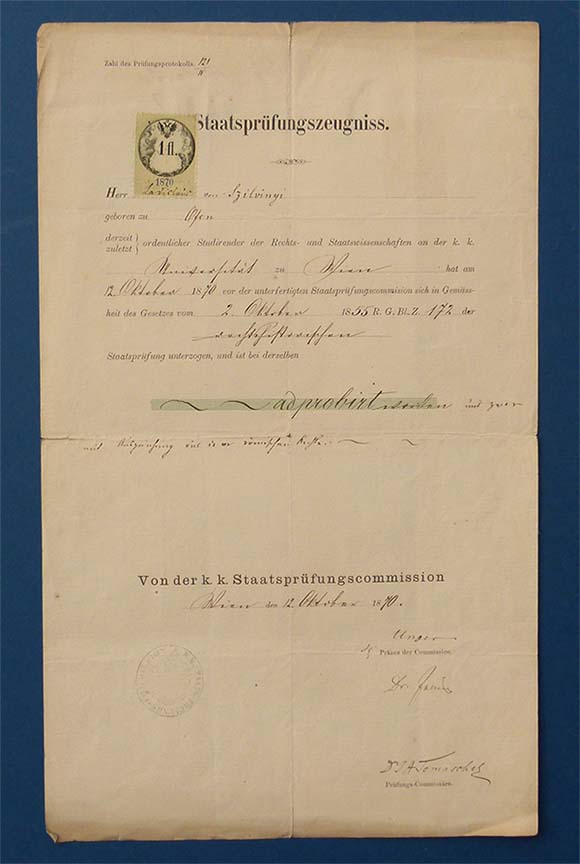 Zahl des Prüfungsprotokolls. 121
IV
Staatsprüfungszeugniss.
1 fl.
1870
Herr Ladislaus von Szilvinyi
geboren zu Ofen
derzeit
zuletzt } ordentlicher Studirender der Rechts- und Staatswissenschaften an der k. k.
Universität zu Wien hat am
12 Oktober 1870 vor der unterfertigten Staatsprüfungscommission sich in Gemäss-
heit des Gesetzes vom 2. Oktober 1855 R. G. Bl. Z. 172 der
rechtshistorischen
Staatsprüfung unterzogen, und ist bei derselben
adprobirt worden und zwar
mit Auszeichnung aus dem römischen Rechte.
Von der k. k. Staatsprüfungscommission
Wien den 12. Oktober 1870.
Unger
Präses der Commission.
Dr.
Dr J A Tomaschek
Prüfungs-Commissäre.